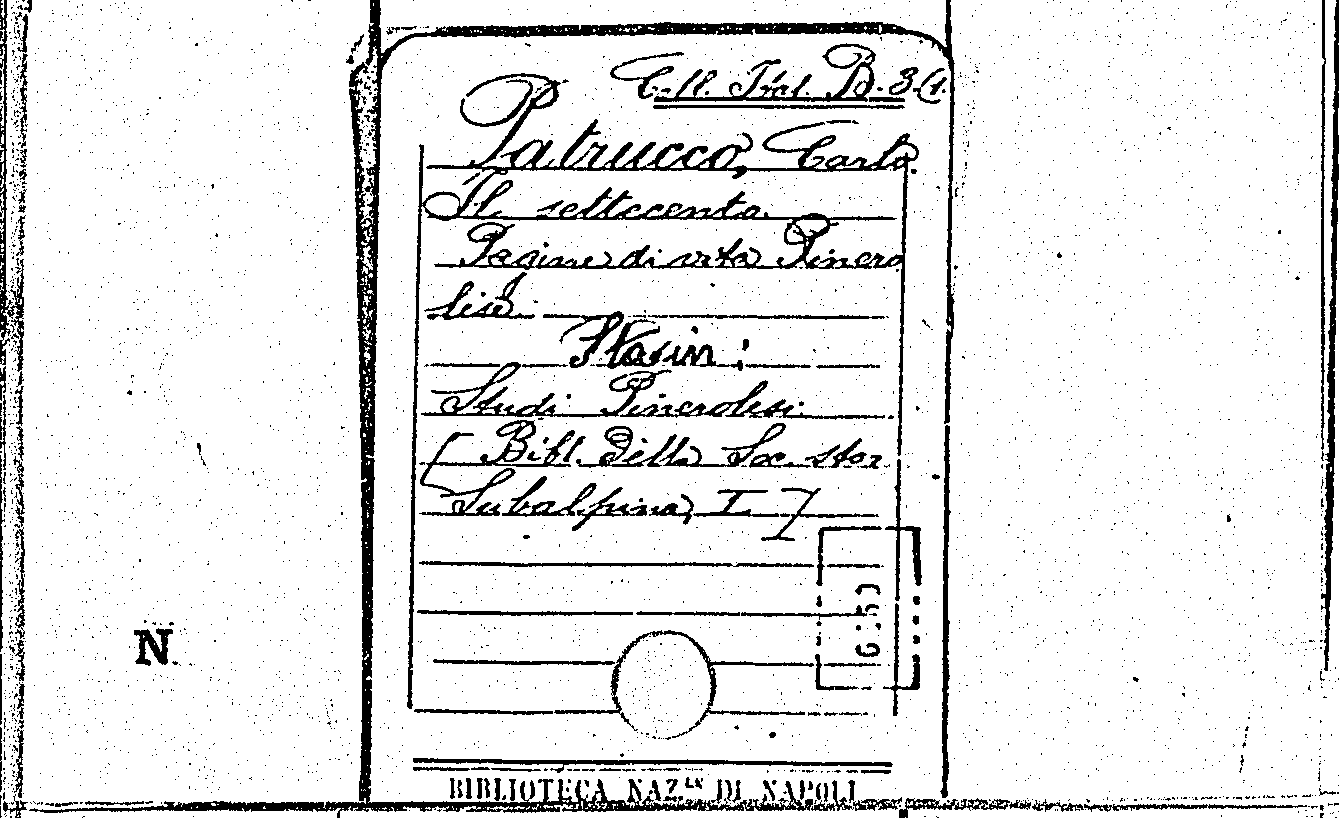 Coll. Ital. B. 3(1.
Patrucco, Carlo.
Il settecento.
Pagine di vita Pinero
lise
Sta in :
Studi Pinerolesi.
[Bibl. della Soc. stor
Subalpina, I]
N
BIBLIOTECA NAZ.LE DI NAPOLI